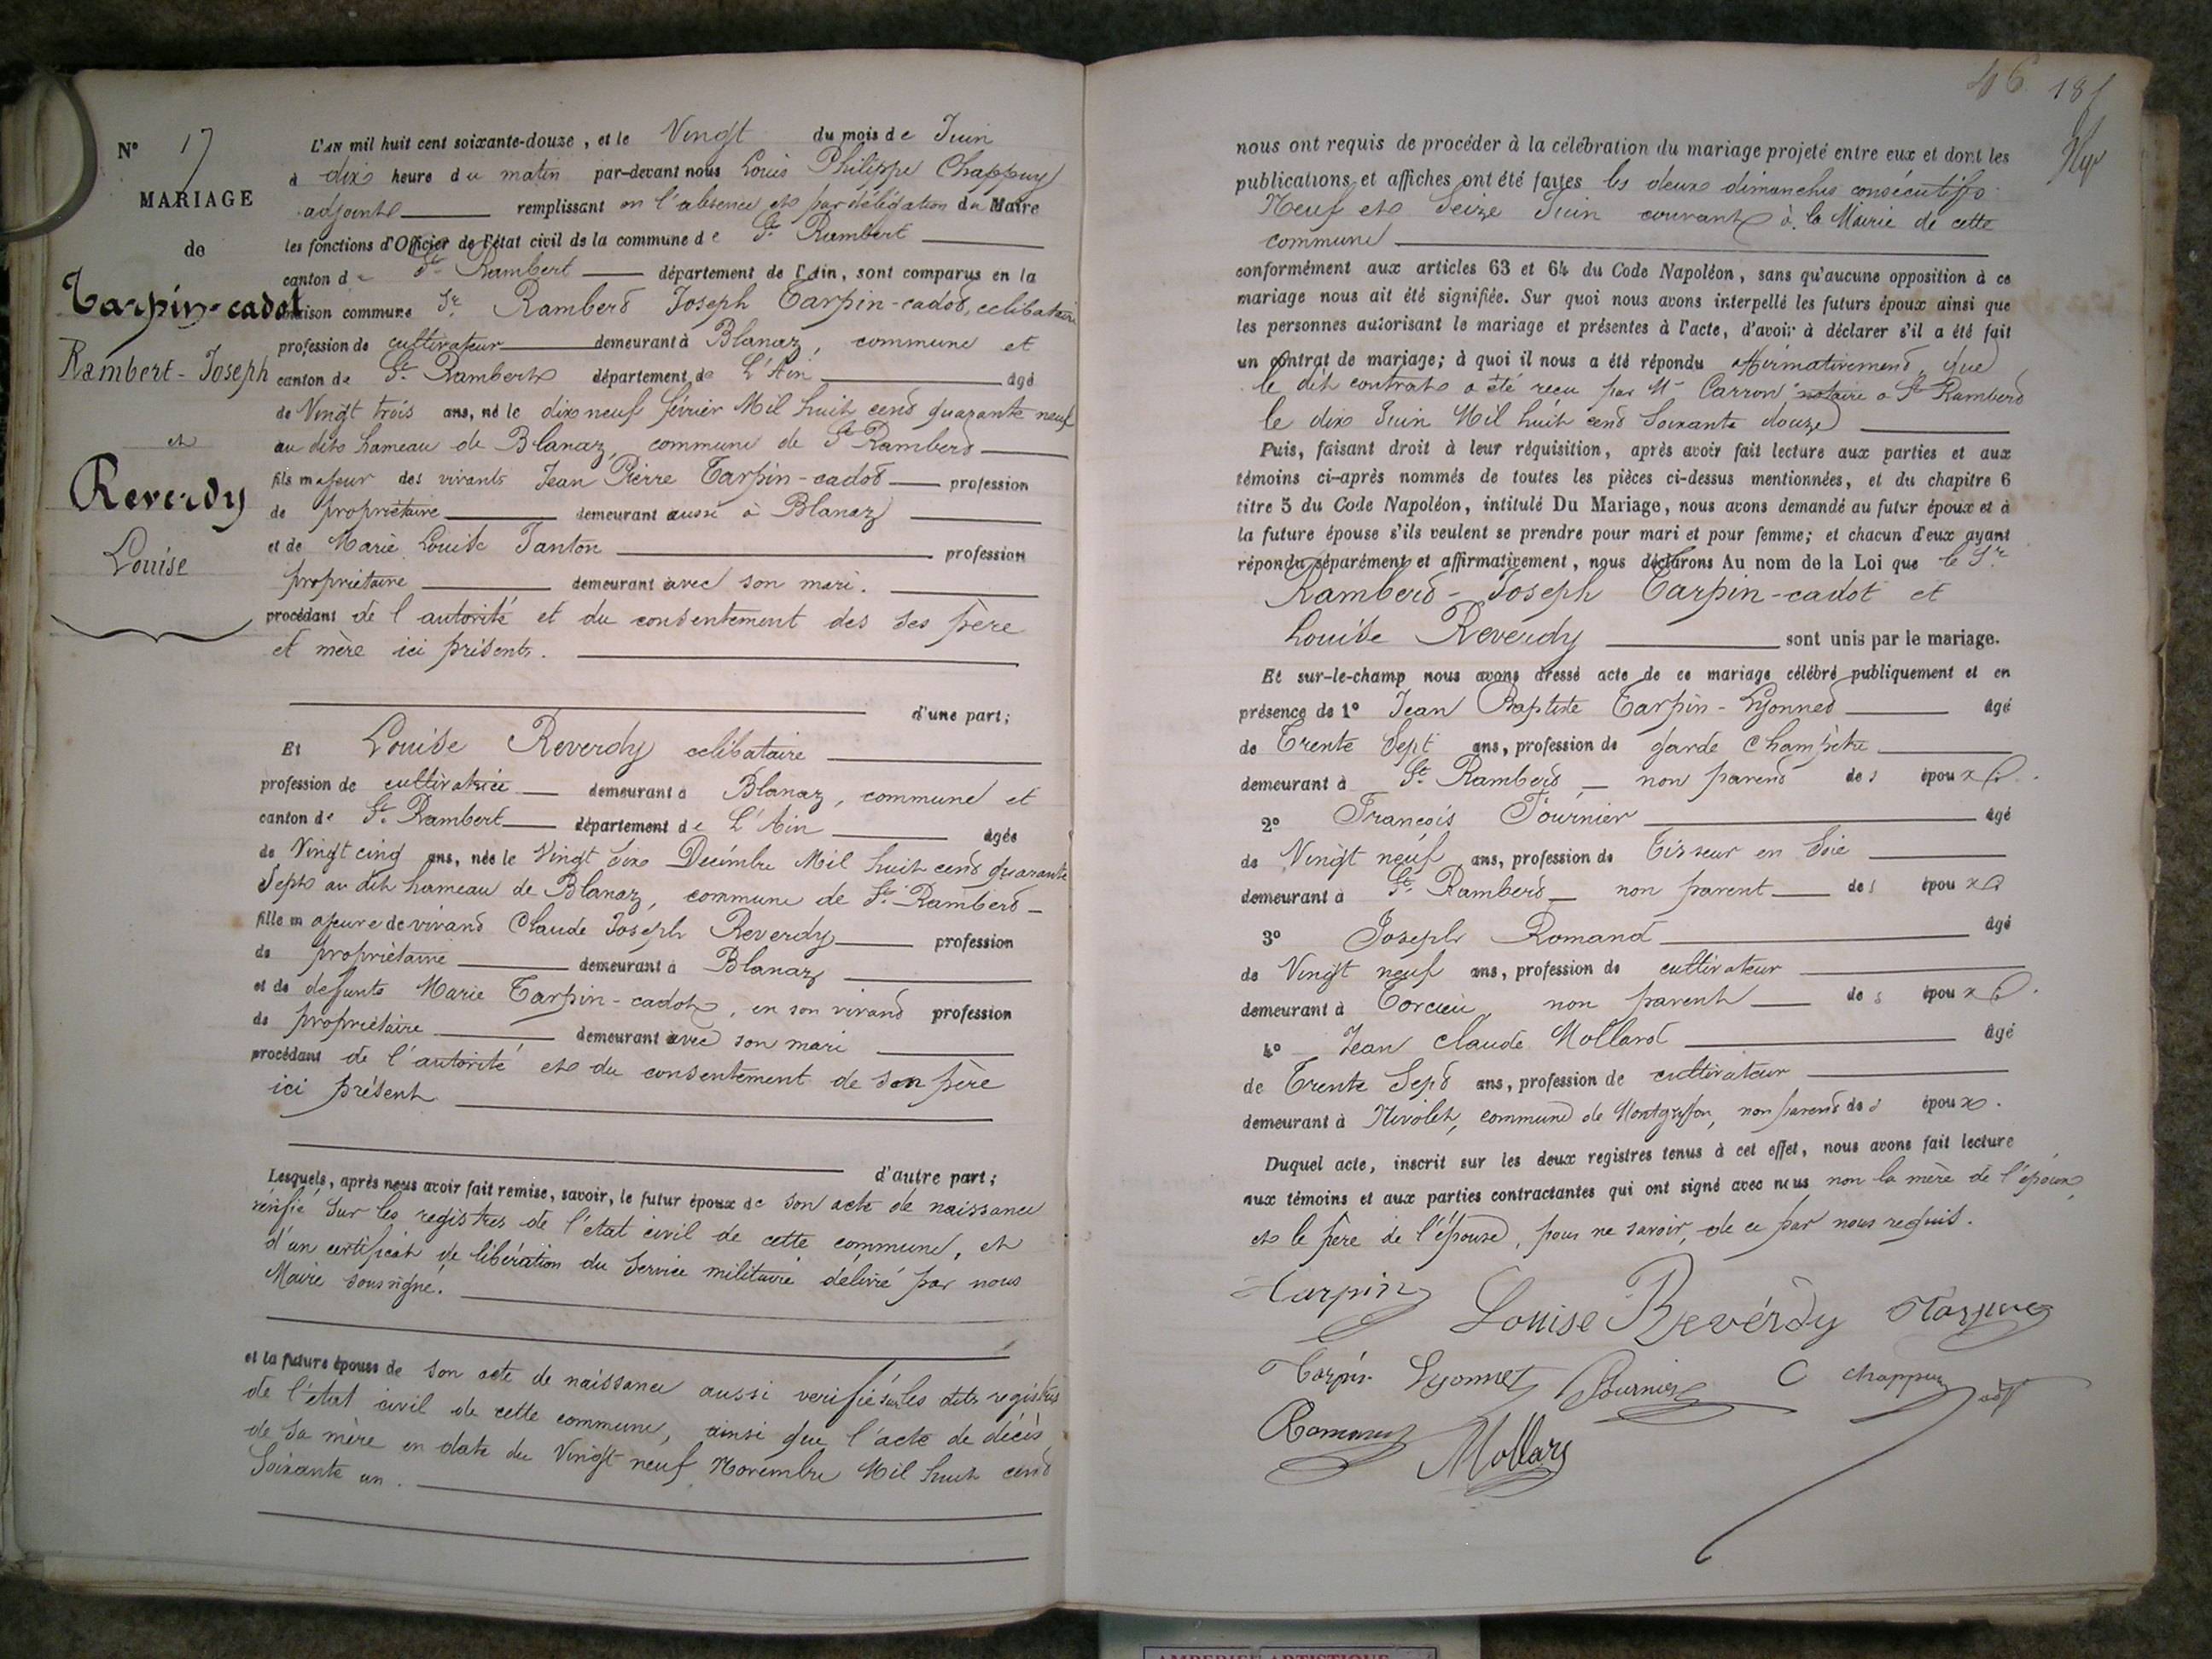 N° 17
MARIAGE
de
Tarpin-cadot
Rambert-Joseph
et
Reverdy
Louise
L'AN mil huit cent soixante-douze, et le Vingt du mois de Juin
à dix heure du matin par-devant nous Louis Philippe Chappuy
adjoint remplissant en l'absence et par délégation du Maire
les fonctions d'Officier de l'état civil de la commune de St Rambert
canton de St Rambert département de l'Ain, sont comparus en la
maison commune Sr Rambert Joseph Tarpin-cadot, celibataire
profession de cultivateur demeurant à Blanaz, commune et
canton de St Rambert département de L'Ain âgé
de Vingt trois ans, né le dix neuf février Mil huit cent quarante neuf
au dit hameau de Blanaz, commune de St Rambert
fils majeur des vivants Jean Pierre Tarpin-cadot profession
de propriètaire demeurant aussi à Blanaz
et de Marie Louise Tanton profession
propriètaire demeurant avec son mari.
procédant de l'autorité et du consentement des ses père
et mère ici présents.
d'une part;
Et Louise Reverdy celibataire
profession de cultivatrice demeurant à Blanaz, commune et
canton de St Rambert département de L'Ain âgée
de Vingt cinq ans, née le Vingt Six Decembre Mil huit cent quarante
Sept au dit hameau de Blanaz, commune de St Rambert
fille majeure de vivant Claude Joseph Reverdy profession
de propriètaire demeurant à Blanaz
et de defunte Marie Tarpin-cadot, en son vivant profession
de propriètaire demeurant avec son mari
procédant de l'autorité et du consentement de son père
ici présent
d'autre part;
Lesquels, après nous avoir fait remise, savoir, le futur époux de son acte de naissance
vérifié sur les registres de l'état civil de cette commune, et
d'un certificat de libération du Service militaire délivré par nous
Maire soussigné.
et la future épouse de son acte de naissance aussi verifié sur les dits registres
de l'état civil de cette commune, ainsi que l'acte de décès
de sa mère en date du Vingt neuf Novembre Mil huit cent
Soixante un.
46 181
nous ont requis de procéder à la célébration du mariage projeté entre eux et dont les
publications et affiches ont été faites les deux dimanches consécutifs
Neuf et Seize Juin courant à la Mairie de cette
commune
conformément aux articles 63 et 64 du Code Napoléon, sans qu'aucune opposition à ce
mariage nous ait été signifiée. Sur quoi nous avons interpellé les futurs époux ainsi que
les personnes autorisant le mariage et présentes à l'acte, d'avoir à déclarer s'il a été fait
un contrat de mariage; à quoi il nous a été répondu Afirmativement, que
le dit contrat a été reçu par Me Carron notaire à St Rambert
le dix Juin Mil huit cent Soixante douze
Puis, faisant droit à leur réquisition, après avoir fait lecture aux parties et aux
témoins ci-après nommés de toutes les pièces ci-dessus mentionnées, et du chapitre 6
titre 5 du Code Napoléon, intitulé Du Mariage, nous avons demandé au futur époux et à
la future épouse s'ils veulent se prendre pour mari et pour femme; et chacun d'eux ayant
répondu séparément et affirmativement, nous déclarons Au nom de la Loi que le Sr
Rambert-Joseph Tarpin-cadot et
Louise Reverdy sont unis par le mariage.
Et sur-le-champ nous avons dressé acte de ce mariage célébré publiquement et en
présence de 1° Jean Baptiste Tarpin-Lyonnet âgé
de Trente Sept ans, profession de garde Champêtre
demeurant à St Rambert non parent des époux
2° François Fournier âgé
de Vingt neuf ans, profession de Tisseur en Soie
demeurant à St Rambert non parent des époux
3° Joseph Romand âgé
de Vingt neuf ans, profession de cultivateur
demeurant à Torcieu, non parent des époux
4° Jean Claude Mollard âgé
de Trente Sept ans, profession de cultivateur
demeurant à Nivolet, commune de Montgriffon, non parent des époux.
Duquel acte, inscrit sur les deux registres tenus à cet effet, nous avons fait lecture
aux témoins et aux parties contractantes qui ont signé avec nous non la mère de l'époux,
et le père de l'épouse, pour ne savoir, de ce par nous requis.
Tarpin Louise Revérdy
Tarpin Lyonnet Fournier C Chappuy adjt
Romand Mollard